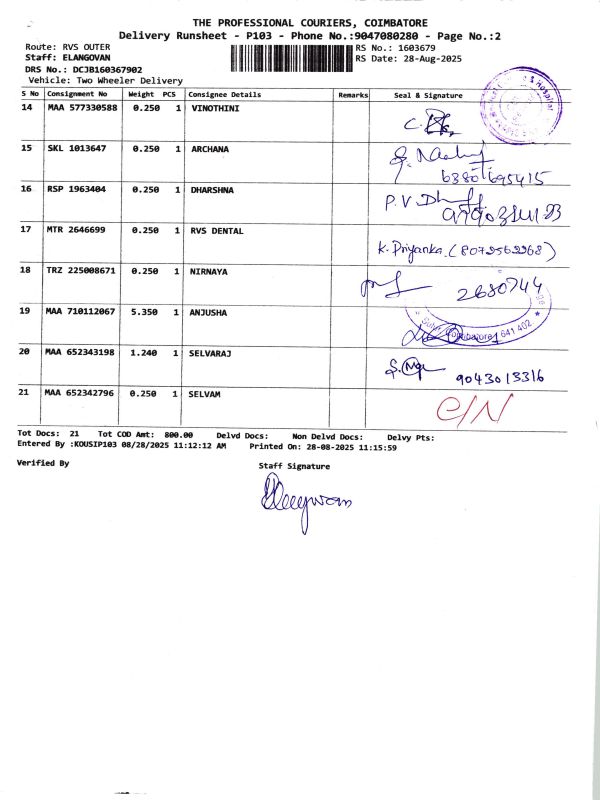 THE PROFESSIONAL COURIERS, COIMBATORE
Delivery Runsheet - P103 - Phone No.:9047080280 - Page No.:2
Route: RVS OUTER
RS No.: 1603679
Staff: ELANGOVAN
RS Date: 28-Aug-2025
DRS No.: DCJB160367902
Vehicle: Two Wheeler Delivery
S No Consignment No Weight PCS Consignee Details Remarks Seal & Signature
14 MAA 577330588 0.250 1 VINOTHINI
15 SKL 1013647 0.250 1 ARCHANA
6380695415
16 RSP 1963404 0.250 1 DHARSHNA P.V
17 MTR 2646699 0.250 1 RVS DENTAL K. Priyanka (8072563268)
18 TRZ 225008671 0.250 1 NIRNAYA 2680744
19 MAA 710112067 5.350 1 ANJUSHA
Coimbatore 641 402
20 MAA 652343198 1.240 1 SELVARAJ
9043013316
21 MAA 652342796 0.250 1 SELVAM C/N
Tot Docs: 21 Tot COD Amt: 800.00 Delvd Docs: Non Delvd Docs: Delvy Pts:
Entered By :KOUSIP103 08/28/2025 11:12:12 AM Printed On: 28-08-2025 11:15:59
Verified By
Staff Signature